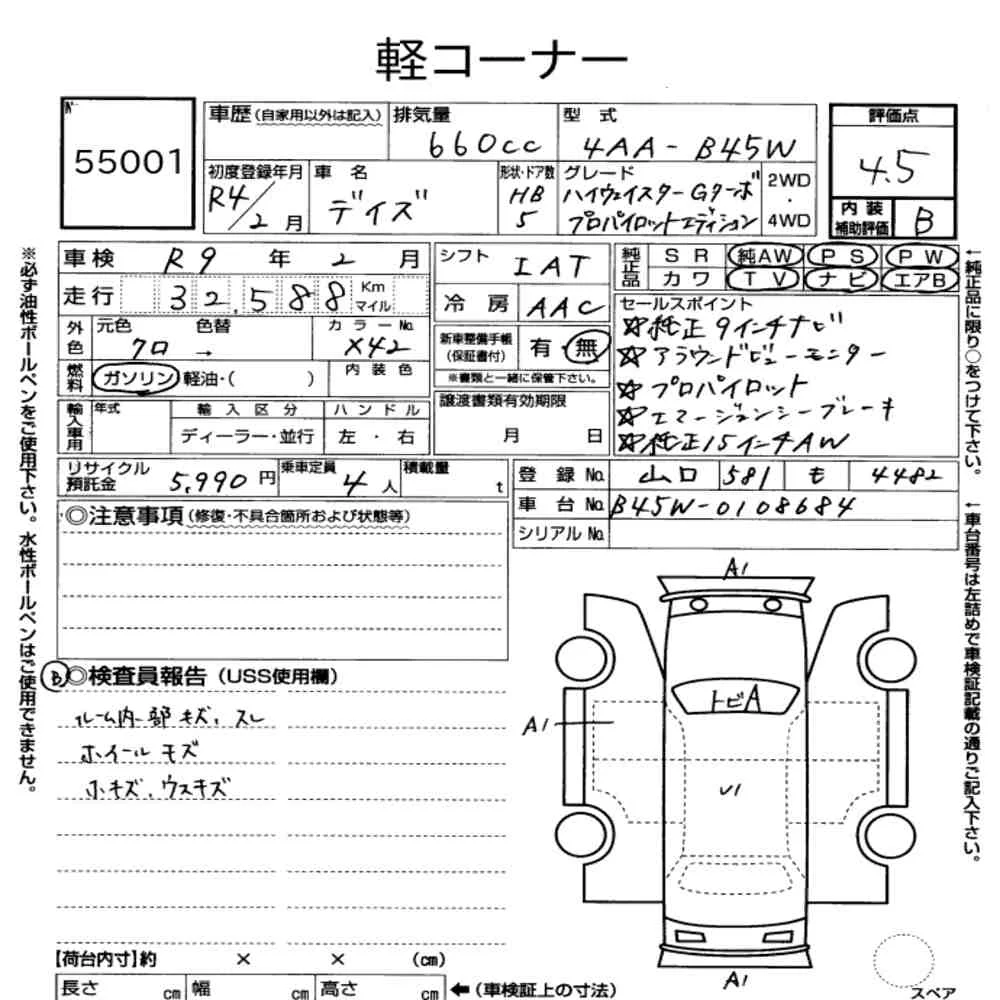 軽コーナー
№
55001
車歴(自家用以外は記入)
排気量
660cc
型式
4AA-B45W
評価点
4.5
初度登録年月
R4/2月
車名
デイズ
形状・ドア数
HB
5
グレード
ハイウェイスターGターボ
プロパイロットエディション
2WD
・
4WD
内装
補助評価
B
車検 R9年2月
シフト IAT
純正品
SR 純AW PS PW
カワ TV ナビ エアB
走行 32,588 Km
マイル
冷房 AAC
セールスポイント
☆純正9インチナビ
☆アラウンドビューモニター
☆プロパイロット
☆エマージョンシーブレーキ
☆純正15インチAW
外色
元色 色替
クロ →
カラーNo.
X42
新車整備手帳
(保証書付)
有・無
※書類と一緒に保管下さい。
燃料
ガソリン・軽油・( )
内装色
譲渡書類有効期限
月 日
輸入車用
年式
輸入区分
ディーラー・並行
ハンドル
左・右
リサイクル
預託金
5,990円
乗車定員
4人
積載量
t
登録No. 山口 581 も 4482
車台No. B45W-0108684
シリアルNo.
◎注意事項(修復・不具合箇所および状態等)
B
◎検査員報告(USS使用欄)
ルーム内部キズ、スレ
ホイールキズ
小キズ、ウスキズ
A1
A1
トビA
U1
A1
【荷台内寸】約 × × (cm)
長さ cm 幅 cm 高さ cm
←(車検証上の寸法)
スペア
※必ず油性ボールペンをご使用下さい。水性ボールペンはご使用できません。
←純正品に限り○をつけて下さい。
←車台番号は左詰めで車検証記載の通りご記入下さい。